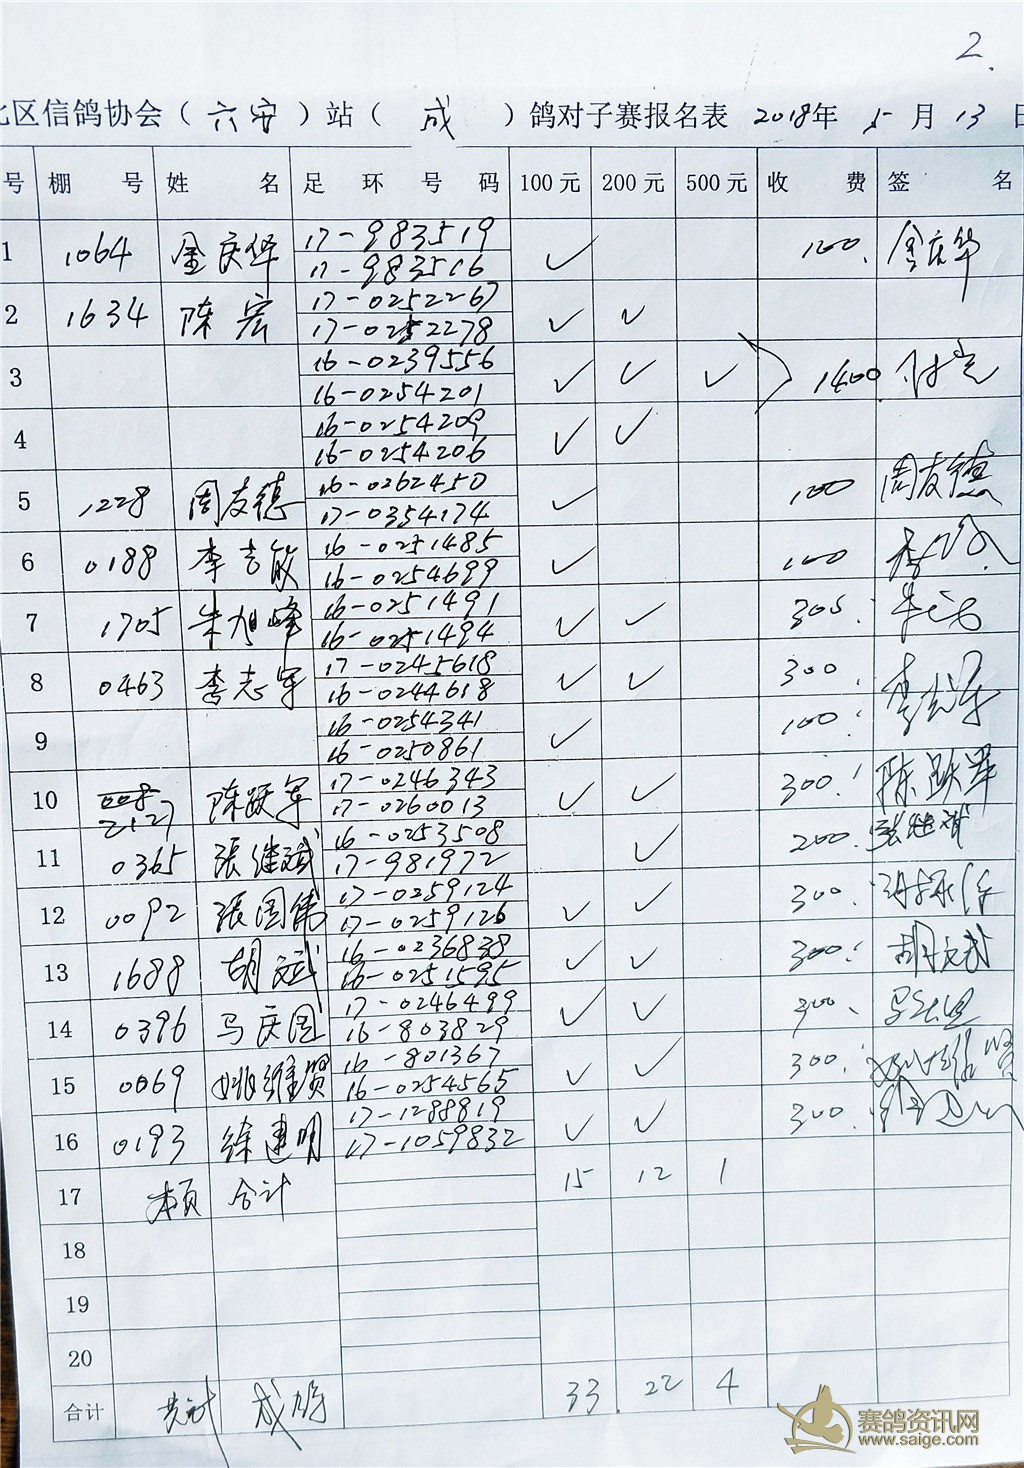 2.
区信鸽协会（六安）站（成）鸽对子赛报名表 2018年 5月13日
号 棚号 姓名 足环号码 100元 200元 500元 收费 签名
1 1064 金庆华 17-983519 17-983516 ✓ 100. 金庆华
2 1634 陈宏 17-0252267 17-0252278 ✓ ✓
3 16-0239556 16-0254201 ✓ ✓ ✓ 1400
4 16-0254209 16-0254206 ✓ ✓
5 1228 周友德 16-0262450 17-0354174 ✓ 100 周友德
6 0188 李志敏 16-0251485 16-0254699 ✓ 100
7 1705 朱旭峰 16-0251491 16-0251494 ✓ ✓ 300
8 0463 李志军 17-0245618 16-0244618 ✓ ✓ 300 李志军
9 16-0254341 16-0250861 ✓ 100
10 2127 陈跃军 17-0246343 17-0260013 ✓ ✓ 300 陈跃军
11 0365 張继斌 16-0253508 17-981972 ✓ 200 張继斌
12 0092 張国伟 17-0259124 17-0259126 ✓ ✓ 300
13 1688 胡斌 16-0236838 16-0251595 ✓ ✓ 300 胡文斌
14 0396 马庆国 17-0246499 16-803829 ✓ ✓ 300
15 0069 姚维贤 16-801367 16-0254565 ✓ ✓ 300 姚维贤
16 0193 徐建明 17-1288819 17-1059832 ✓ ✓ 300
17 本页 合计 15 12 1
18
19
20
合计 共计 成鸽 33 22 4
赛鸽资讯网
www.saige.com